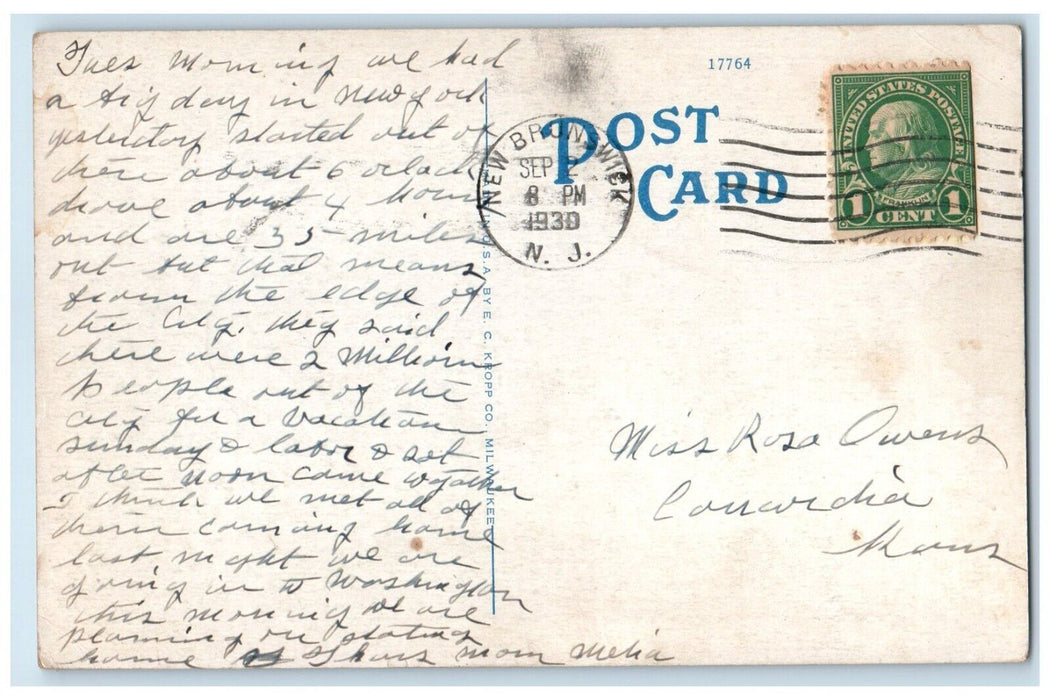 Tues Morning we had
a big day in New York
yesterday started out of
there about 6 oclock
drove about 4 hours
and are 35 miles
out but that means
from the edge of
the City. they said
there were 2 Million
People out of the
city for a vacation
sunday & labor & set
after noon come together
I think we met all of
them coming home
last night we are
going in to Washington
this morning we are
planning on stating
home Thurs mom Melia
17764
POST
CARD
NEW BRUNSWICK
SEP 2
8 PM
1930
N. J.
UNITED STATES POSTAGE
FRANKLIN
1 CENT 1
U.S.A. BY E. C. KROPP CO., MILWAUKEE
Miss Rosa Owens
Concordia
Kans